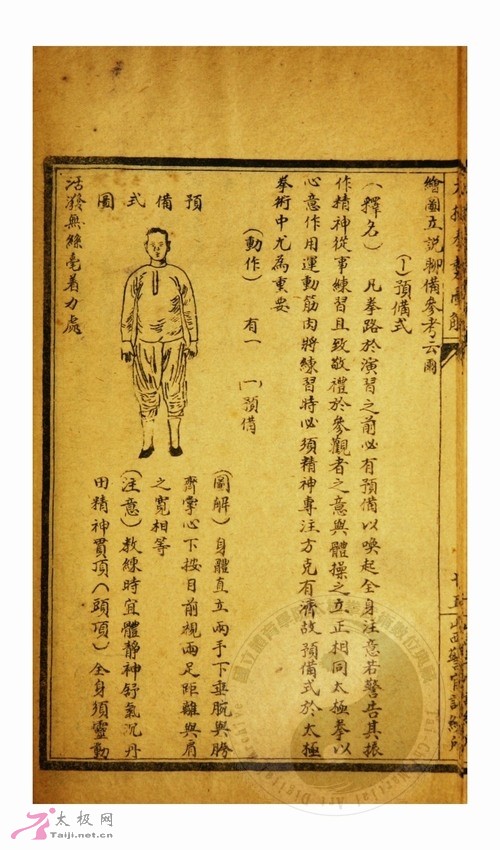 山西警官訓練所
繪圖立說聊備參考云爾
(一)預備式
(釋名) 凡拳路於演習之前必有預備以喚起全身注意若警告其振
作精神從事練習且致敬禮於參觀者之意與體操之立正相同太極拳以
心意作用運動筋肉將練習時必須精神專注方克有濟故預備式於太極
拳術中尤為重要
(動作) 有一 一)預備
預備式圖
(圖解)身體直立兩手下垂脘與胯
齊掌心下按目前視兩足距離與肩
之寬相等
(注意)教練時宜體靜神舒氣沉丹
田精神貫頂(頭頂)全身須靈動
活潑無絲毫着力處
太极网
Taiji.net.cn